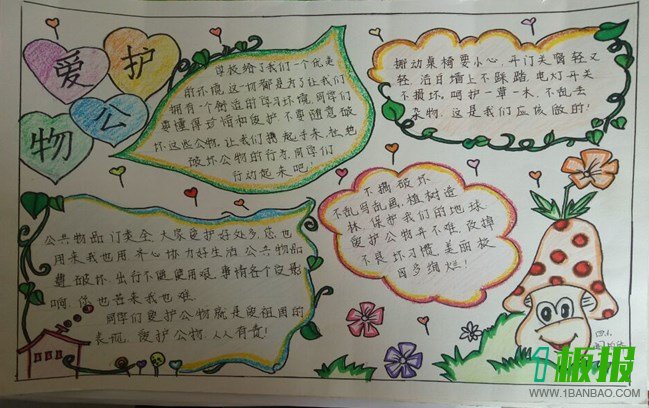 爱护
公物
学校给了我们一个优美
的环境,这一切都是为了让我们
拥有一个舒适的学习环境,同学们
要懂得珍惜和爱护,不要随意破
坏这些公物,让我们携起手来,杜绝
破坏公物的行为,同学们
行动起来吧!
搬动桌椅要小心,开门关窗轻又
轻,洁白墙上不踩踏,电灯开关
不损坏,呵护一草一木,不乱丢
杂物,这是我们应该做的!
不搞破坏
不乱写乱画,植树造
林,保护我们的地球
爱护公物并不难,改掉
不良坏习惯,美丽校
园多绚烂!
公共物品,门类全,大家爱护好处多,您也
用来我也用,开心协力好生活,公共物品
费破坏,出行不便使用艰,事情各个没
响,你也苦来我也难,
同学们爱护公物就是爱祖国的
表现,爱护公物,人人有责!
四、
1板报
WWW.1BANBAO.COM